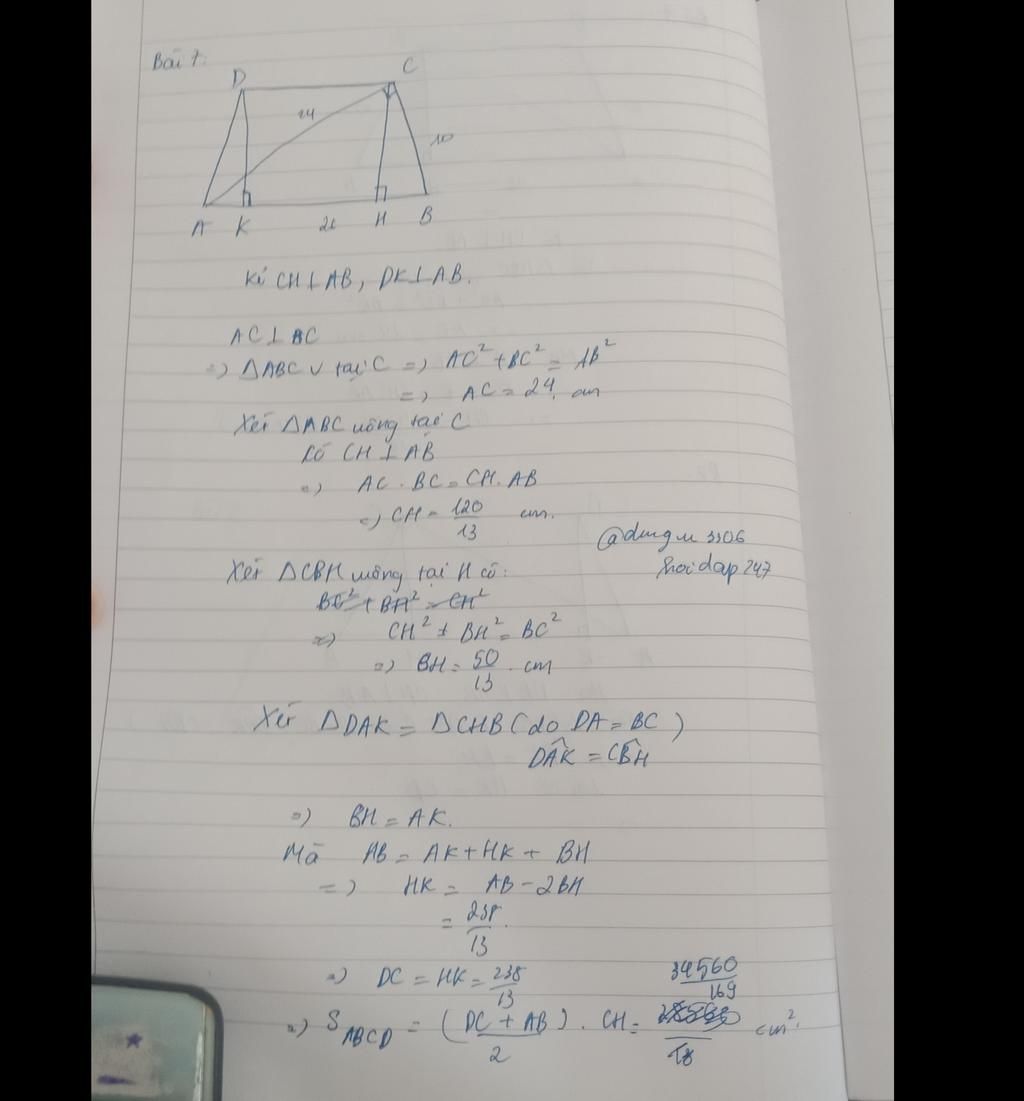 Bài 7:
D
C
24
10
A K 26 H B
Kẻ CH⊥AB, DK⊥AB.
AC⊥BC
=) ΔABC v tại C =) AC² + BC² = AB²
=) AC = 24 cm
Xét ΔABC vuông tại C
Có CH ⊥ AB
=) AC . BC = CH . AB
=) CH = 120/13 cm.
@dungu3306
hoidap247
Xét ΔCBH vuông tại H có:
BC² + BH² = CH²
=) CH² + BH² = BC²
=) BH = 50/13 cm
Xét ΔDAK = ΔCHB (do DA = BC)
DÂK = CB̂H
=) BH = AK.
Mà AB = AK + HK + BH
=) HK = AB - 2BH
= 238/13.
=) DC = HK = 238/13
=) S ABCD = (DC + AB)/2 . CH = 34560/169 cm²